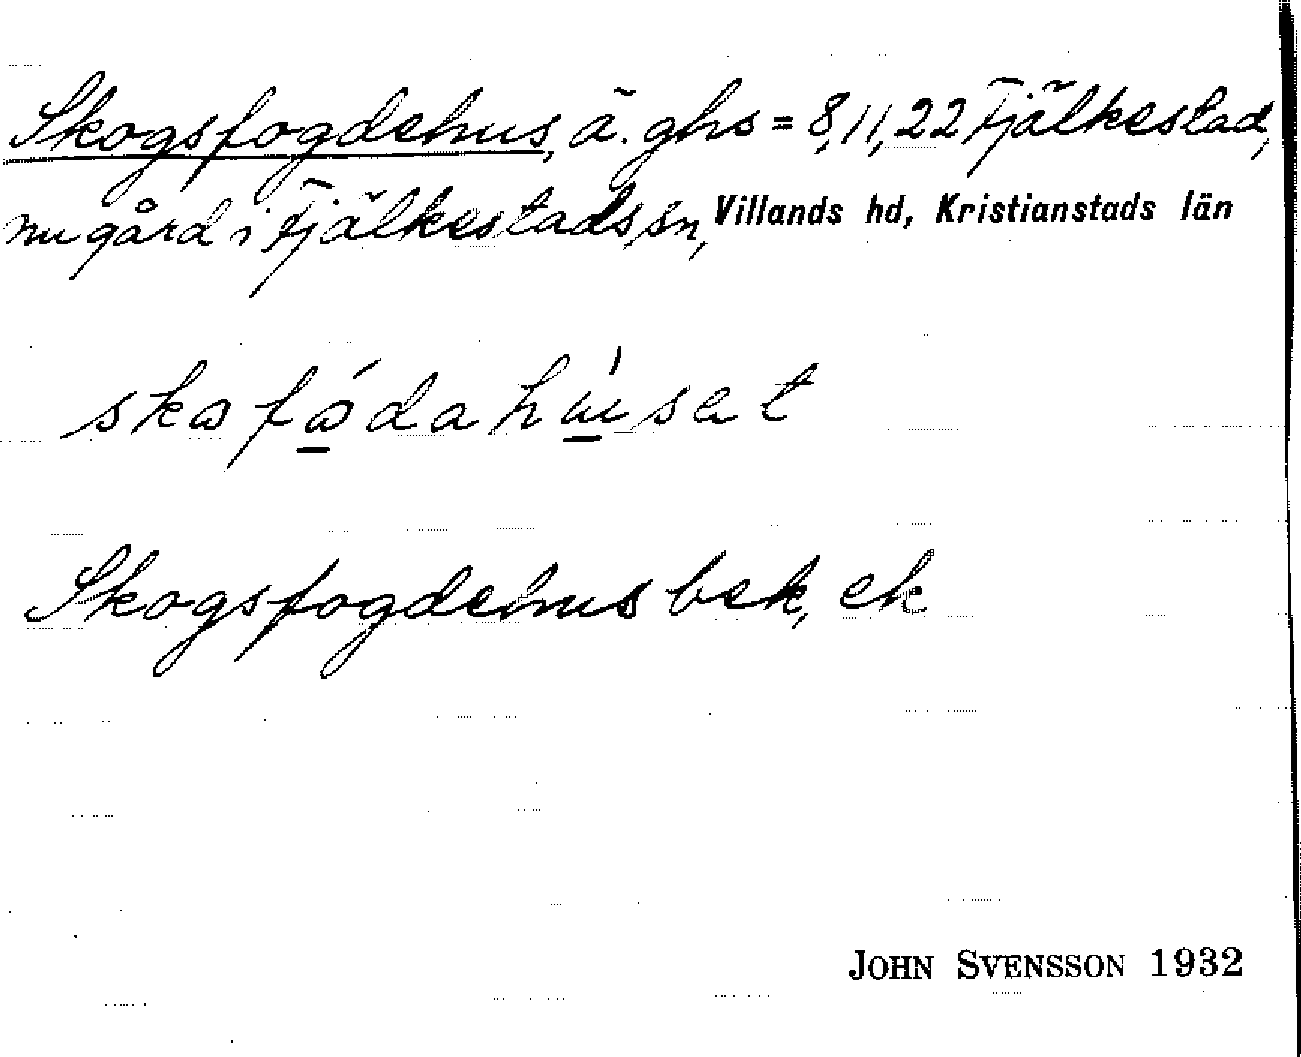 Skogsfogdehus, ä. ghs = 8, 11, 22 Fjälkestad,
nu gård i Fjälkestads sn, Villands hd, Kristianstads län
skofódahúsat
Skogsfogdehus bek, ek
JOHN SVENSSON 1932